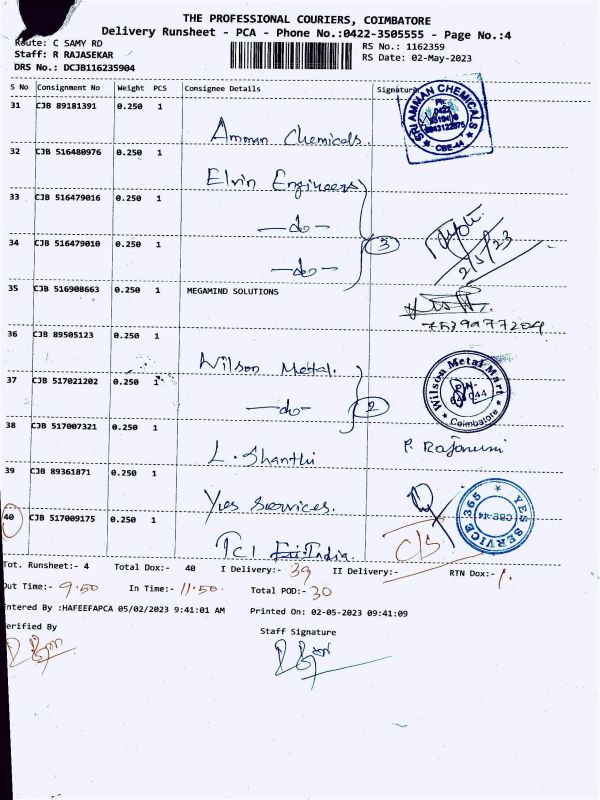 THE PROFESSIONAL COURIERS, COIMBATORE
Delivery Runsheet - PCA - Phone No.:0422-3505555 - Page No.:4
Route: C SAMY RD
RS No.: 1162359
Staff: R RAJASEKAR
RS Date: 02-May-2023
DRS No.: DCJB116235904
S No Consignment No Weight PCS Consignee Details Signature
31 CJB 89181391 0.250 1
Amman Chemicals.
SRI AMMAN CHEMICALS
Ph: 0422
CBE-44
32 CJB 516480976 0.250 1
Elvin Engineers
33 CJB 516479016 0.250 1
—do—
34 CJB 516479010 0.250 1
3
—do—
2/5/23
35 CJB 516908663 0.250 1 MEGAMIND SOLUTIONS
7539977204
36 CJB 89505123 0.250 1
Wilson Metal.
37 CJB 517021202 0.250 1
—do— 2
Wilson Metal Mart
Coimbatore
38 CJB 517007321 0.250 1
L. Shanthi
39 CJB 89361871 0.250 1
Yes Services.
YES SERVICE 365
CBE-44
40 CJB 517009175 0.250 1
TCI India.
Tot. Runsheet:- 4 Total Dox:- 40 I Delivery:- 39 II Delivery:- RTN Dox:- 1.
Out Time:- 9.50 In Time:- 11.50. Total POD:- 30
Entered By :HAFEEFAPCA 05/02/2023 9:41:01 AM Printed On: 02-05-2023 09:41:09
Verified By
Staff Signature